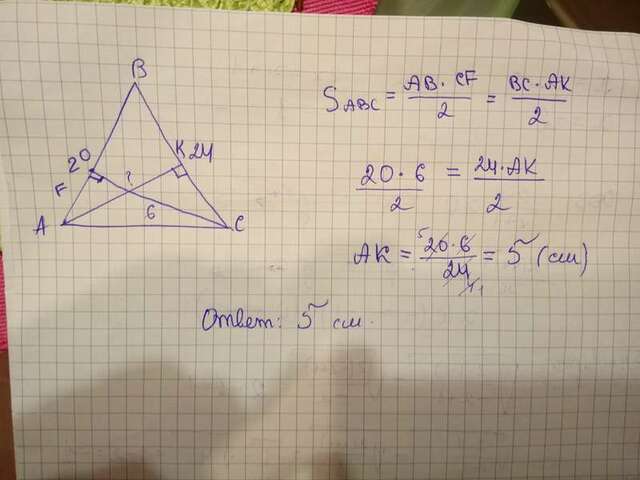 B
20
K 24
F
?
6
A
C
S ABC = AB · CF / 2 = BC · AK / 2
20 · 6 / 2 = 24 · AK / 2
AK = 20 · 6 / 24 = 5 (см)
Ответ: 5 см.